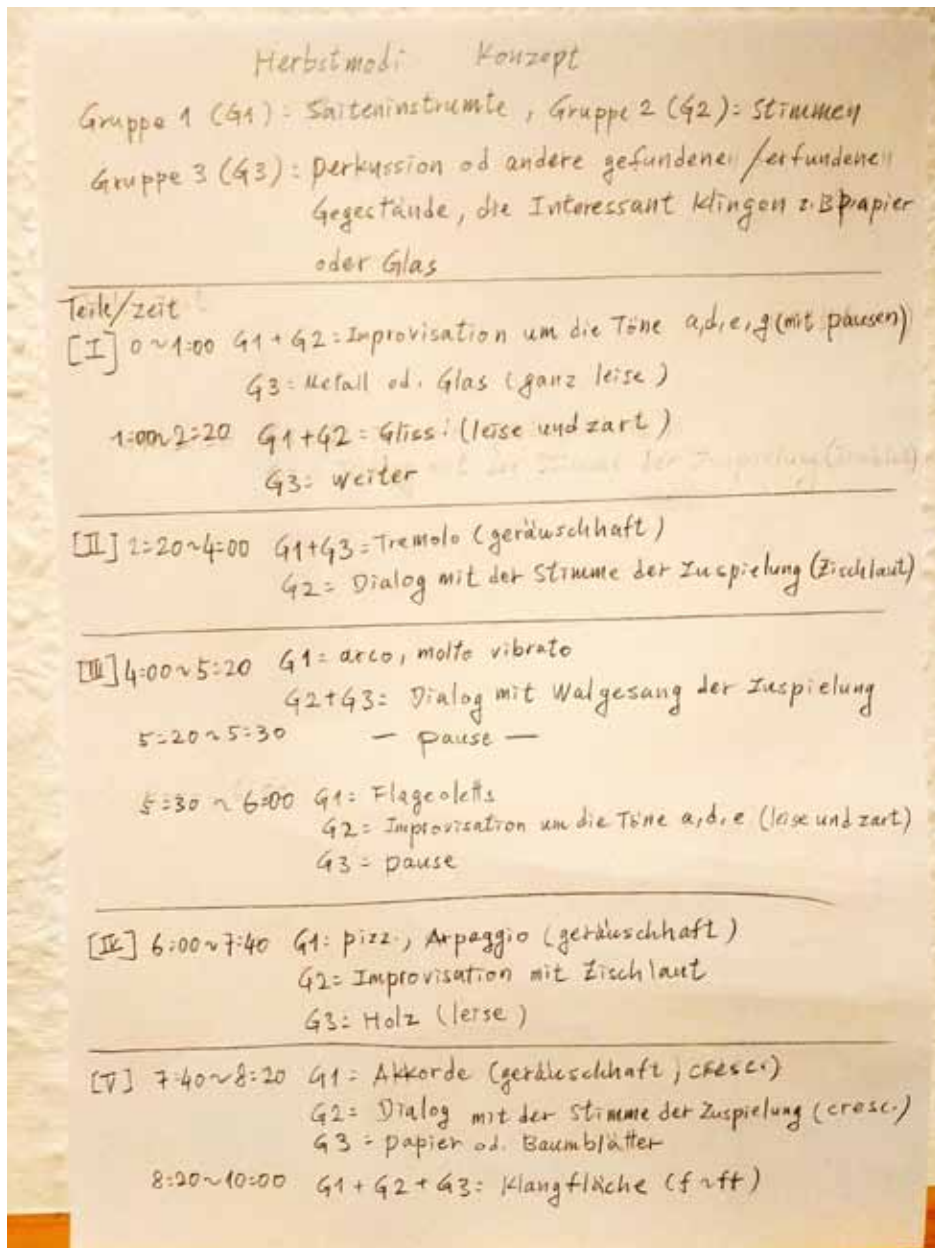 Herbstmodi Konzept
Gruppe 1 (G1): Saiteninstrumte, Gruppe 2 (G2): Stimmen
Gruppe 3 (G3): Perkussion od andere gefundene /erfundene
Gegestände, die Interessant klingen z.B papier
oder Glas
Teile/zeit
[I] 0~1:00 G1+G2: Improvisation um die Töne a,d,e,g (mit pausen)
G3: Metall od. Glas (ganz leise)
1:00~2:20 G1+G2: Gliss. (leise und zart)
G3: weiter
[II] 2:20~4:00 G1+G3: Tremolo (geräuschhaft)
G2: Dialog mit der Stimme der Zuspielung (Zischlaut)
[III] 4:00~5:20 G1: arco, molto vibrato
G2+G3: Dialog mit Walgesang der Zuspielung
5:20~5:30 — pause —
5:30~6:00 G1: Flageoletts
G2: Improvisation um die Töne a,d,e (leise und zart)
G3: pause
[IV] 6:00~7:40 G1: pizz., Arpeggio (geräuschhaft)
G2: Improvisation mit Zischlaut
G3: Holz (leise)
[V] 7:40~8:20 G1: Akkorde (geräuschhaft, cresc.)
G2: Dialog mit der Stimme der Zuspielung (cresc.)
G3: papier od. Baumblätter
8:20~10:00 G1+G2+G3: Klangfläche (f~ff)